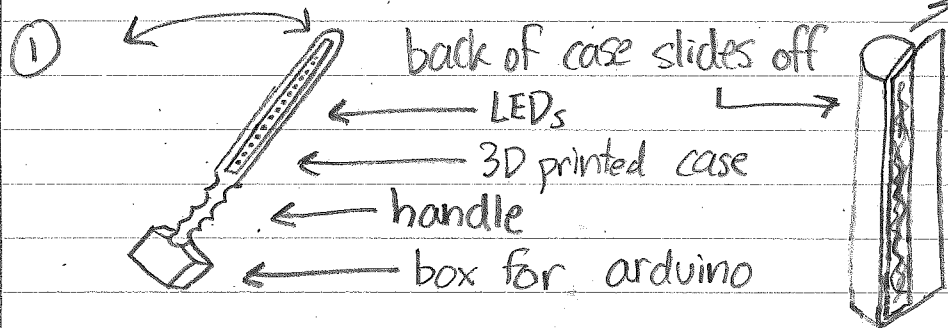 1
back of case slides off
LEDs
3D printed case
handle
box for arduino